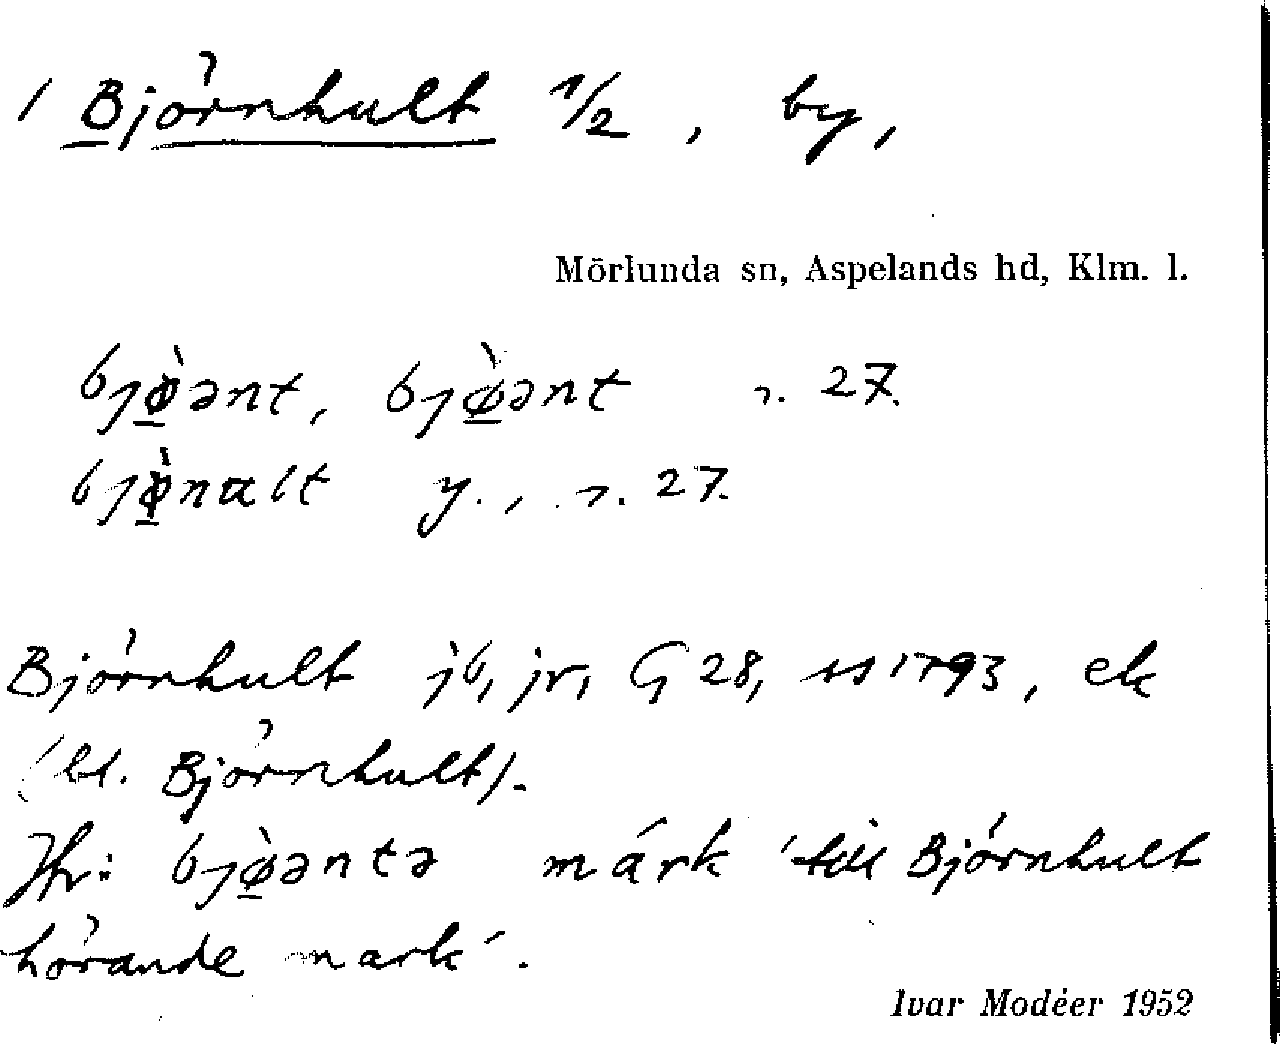 1 Björnhult 1/2, by,
Mörlunda sn, Aspelands hd, Klm. l.
bjø̀ənt, bjø̀ənt r. 27.
bjø̀nɑlt y., r. 27.
Björnhult jb, jr, G 28, ss 1793, ek
(bl. Björnhult).
Hfr: bjø̀əntə márk 'till Björnhult
hörande mark'.
Ivar Modéer 1952